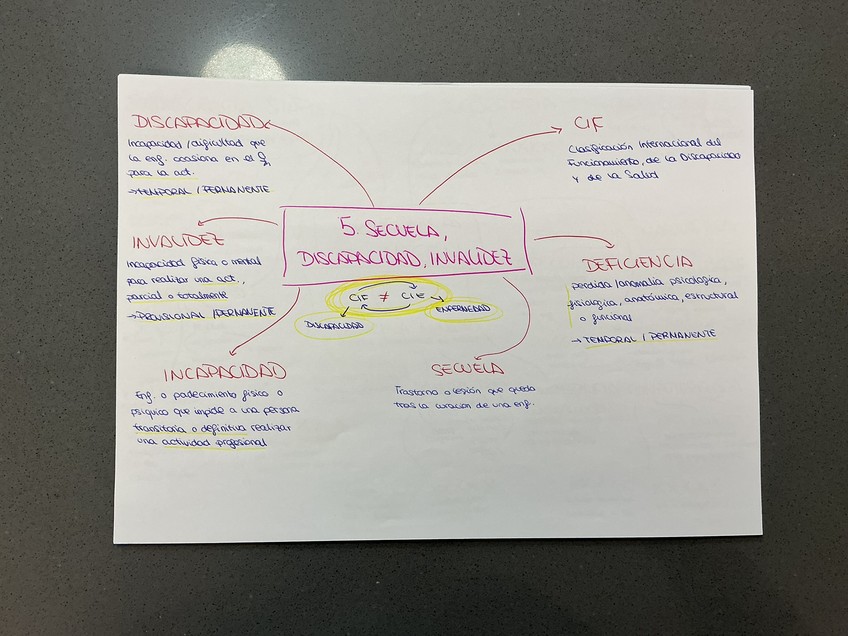 5. SECUELA,
DISCAPACIDAD, INVALIDEZ
CIF ≠ CIE
DISCAPACIDAD
ENFERMEDAD
DISCAPACIDAD
Incapacidad / dificultad que
la enf. ocasiona en el
para la act.
→ TEMPORAL / PERMANENTE
INVALIDEZ
Incapacidad física o mental
para realizar una act.,
parcial o totalmente
→ PROVISIONAL / PERMANENTE
INCAPACIDAD
Enf. o padecimiento físico o
psíquico que impide a una persona
transitoria o definitiva realizar
una actividad profesional
CIF
Clasificación Internacional del
Funcionamiento, de la Discapacidad
y de la Salud
DEFICIENCIA
perdida / anomalía psicológica,
fisiológica, anatómica, estructural
o funcional
→ TEMPORAL / PERMANENTE
SECUELA
Trastorno o lesión que queda
tras la curación de una enf.